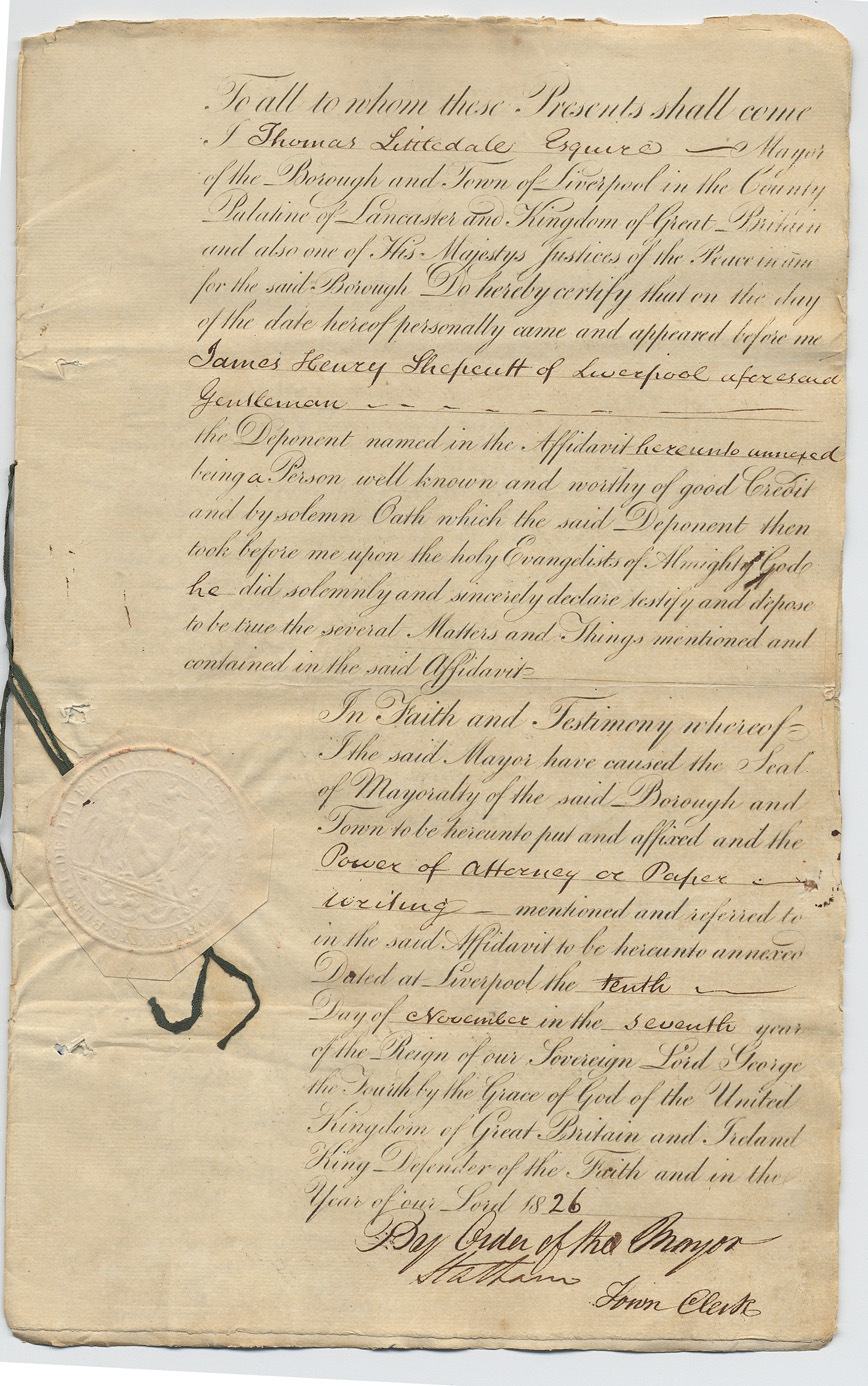 To all to whom these Presents shall come
I Thomas Littledale Esquire — Mayor
of the Borough and Town of Liverpool in the County
Palatine of Lancaster and Kingdom of Great Britain
and also one of His Majestys Justices of the Peace in and
for the said Borough Do hereby certify that on the day
of the date hereof personally came and appeared before me
James Henry of Liverpool aforesaid
Gentleman
the Deponent named in the Affidavit hereunto annexed
being a Person well known and worthy of good Credit
and by solemn Oath which the said Deponent then
took before me upon the holy Evangelists of Almighty God
he did solemnly and sincerely declare testify and depose
to be true the several Matters and Things mentioned and
contained in the said Affidavit
In Faith and Testimony whereof
I the said Mayor have caused the Seal
of Mayoralty of the said Borough and
Town to be hereunto put and affixed and the
Power of Attorney or Paper
Writing — mentioned and referred to
in the said Affidavit to be hereunto annexed
Dated at Liverpool the tenth
Day of November in the seventh year
of the Reign of our Sovereign Lord George
the Fourth by the Grace of God of the United
Kingdom of Great Britain and Ireland
King Defender of the Faith and in the
Year of our Lord 1826
By Order of the Mayor
Statham
Town Clerk